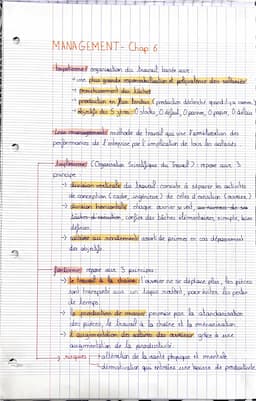 MANAGEMENT - Chap 6
Toyotisme / organisation du travail basée sur :
+ une plus grande responsabilisation et polyvalence des salariés
→ enrichissement des tâches
→ production en flux tendus (production déclenché quand il y a comm.)
→ objectifs des 5 zéros. 0 stocks, 0 défaut, 0 panne, 0 papier, 0 délais
Lean management / méthode de travail qui vise l'amélioration des
performances de l'entreprise par l'implication de tous les salariés
Taylorisme / (Organisation Scientifique du Travail) : repose sur 3
principe
→ division verticale du travail consiste à séparer les activités
de conception (cadre, ingénieur) de celles d'exécution (ouvrier)
→ division horizontale chaque ouvrier se voit
confier des tâches élémentaires, simple, bien
définies.
→ salaire au rendement assorti de primes en cas dépassement
des objectifs.
Fordisme / repose sur 3 principes
→ le travail à la chaîne : l'ouvrier ne se déplace plus, les pièces
sont transporté sur un tapis roulant, pour éviter les pertes
de temps.
→ la production de masse permise par la standardisation
des pièces, le travail à la chaîne et la mécanisation.
→ l'augmentation des salaires des ouvriers grâce à une
augmentation de la productivité.
→ risques → altération de la santé physique et mentale
→ démotivation qui entraîne une baisse de productivité